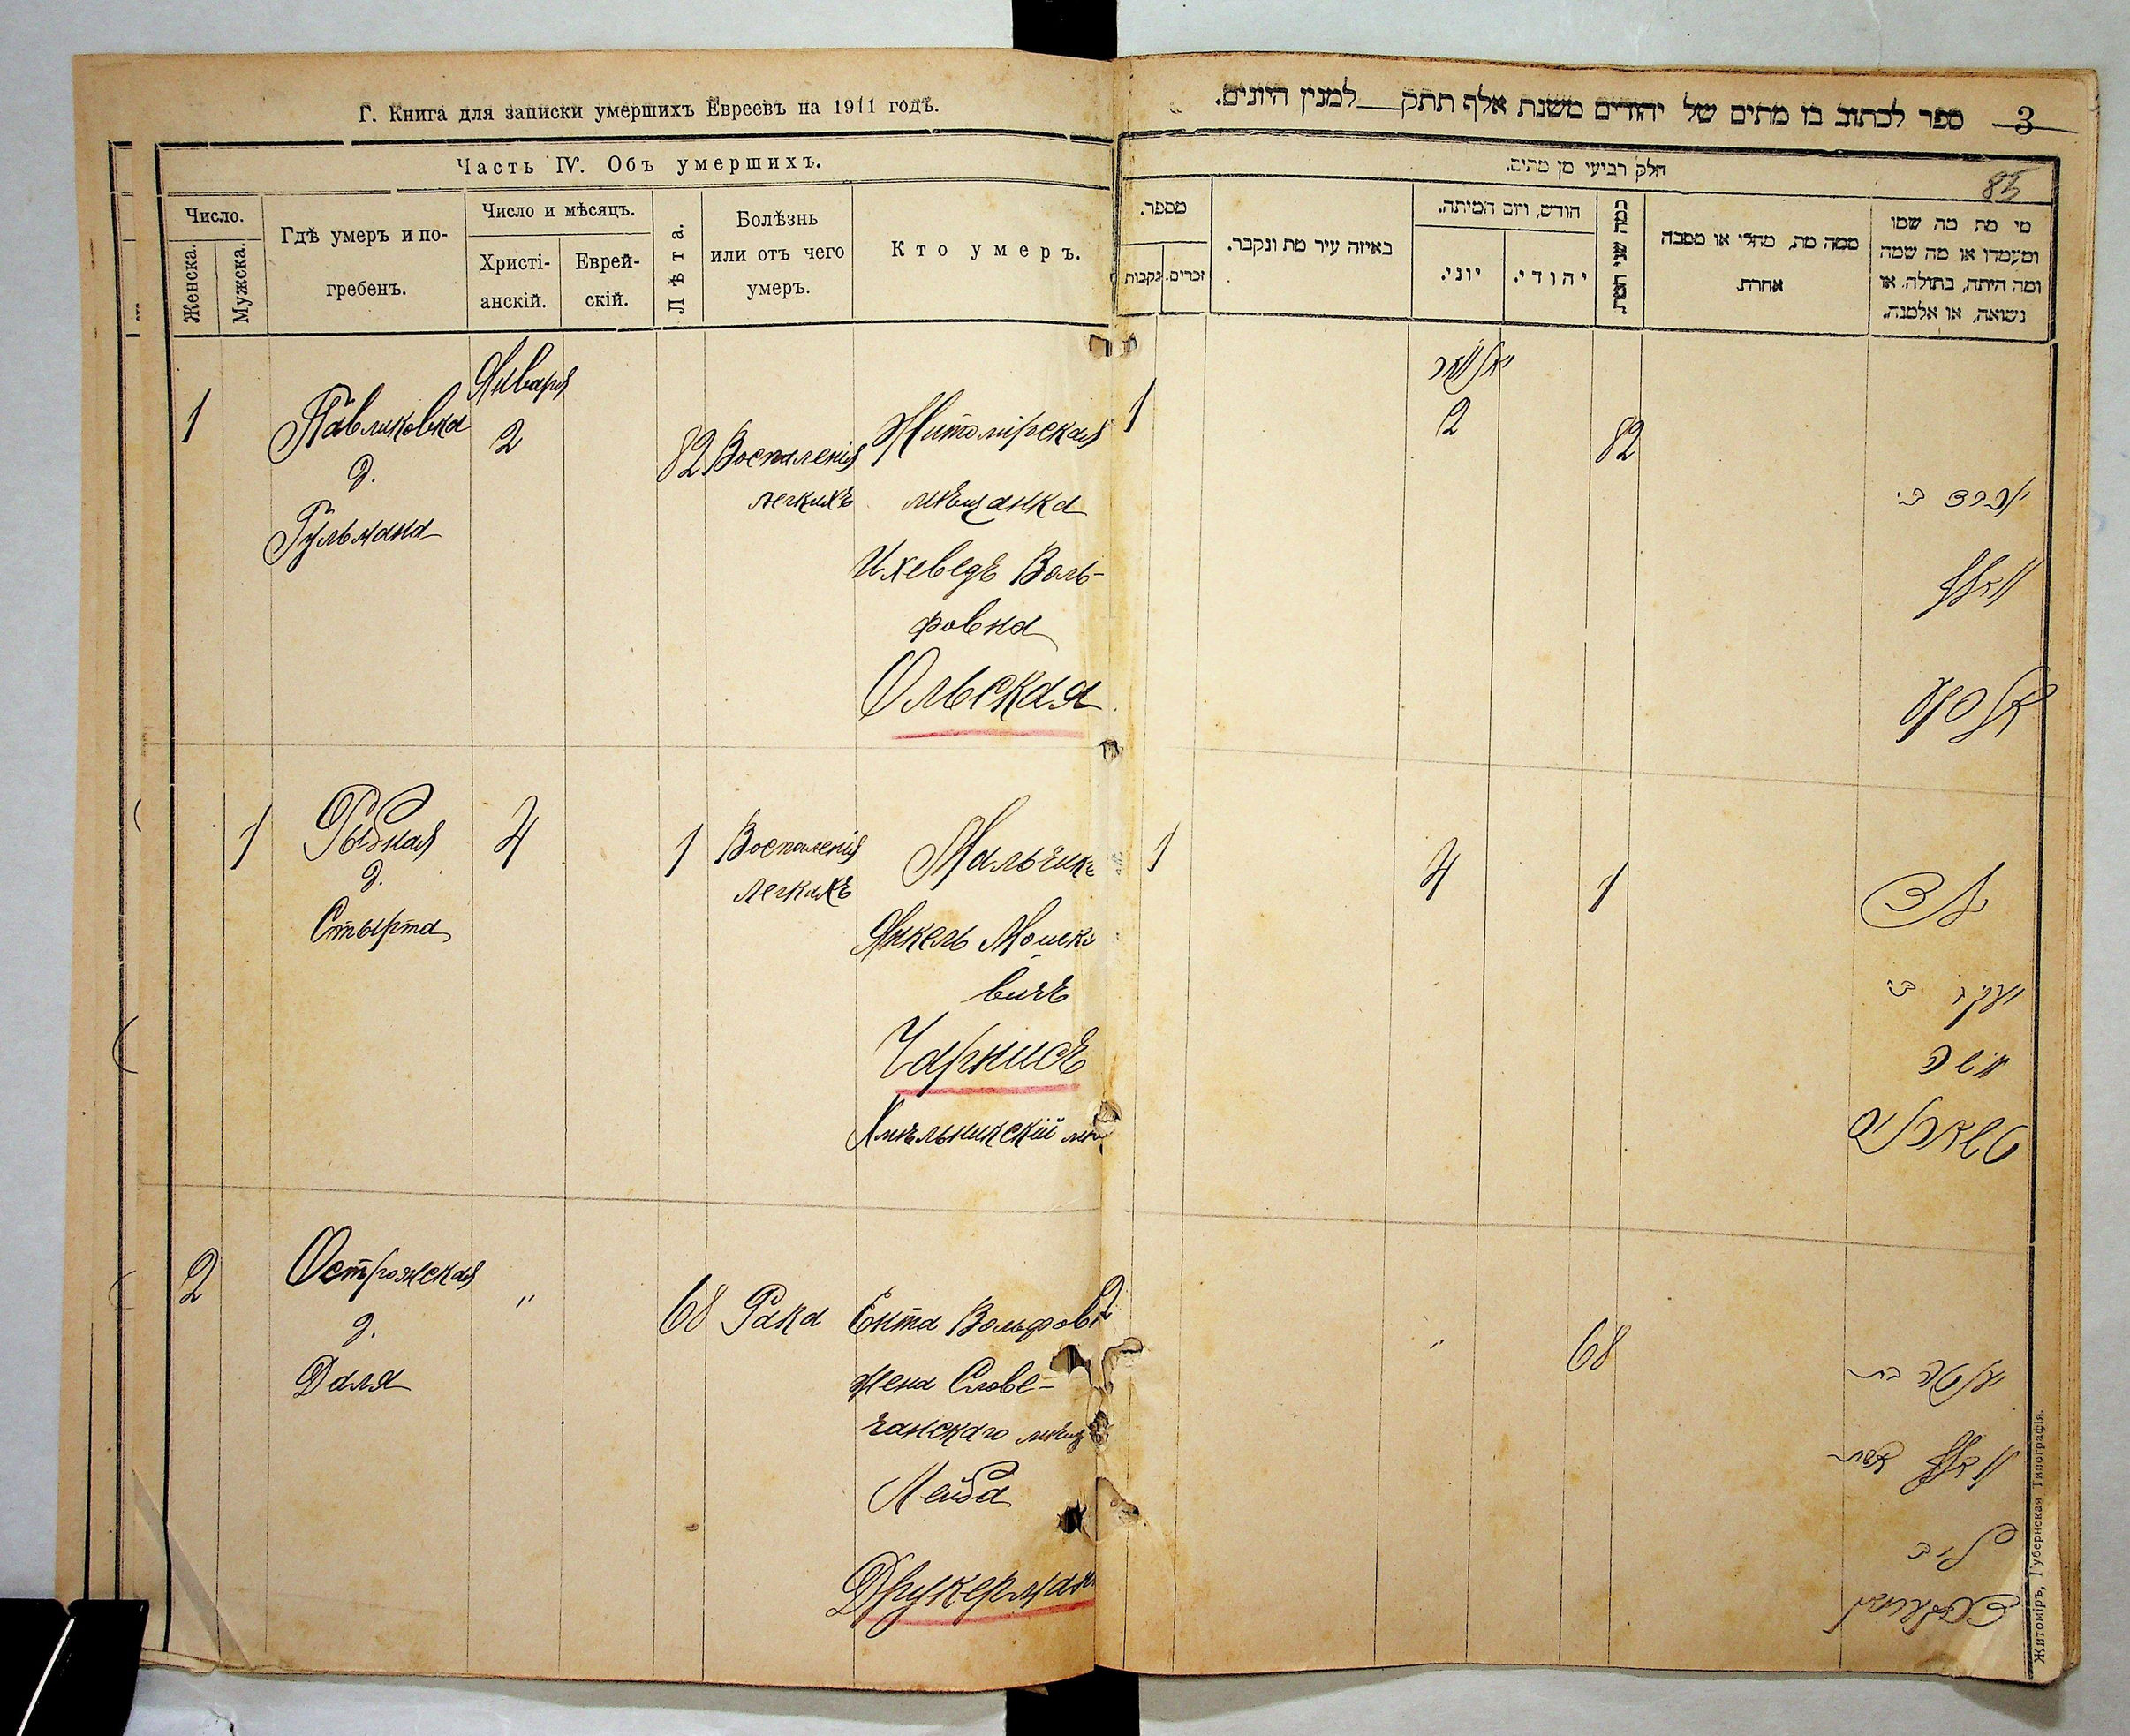 Г. Книга для записки умершихъ Евреевъ на 1911 годъ.
Часть IV. Объ умершихъ.
Число.
Женска.
Мужска.
Гдѣ умеръ и по-
гребенъ.
Число и мѣсяцъ.
Христі-
анскій.
Еврей-
скій.
Лѣта.
Болѣзнь
или отъ чего
умеръ.
Кто умеръ.
1
Павликовка
д.
Гульмана
Января
2
82
Воспаленія
легкихъ
Житомірская
мѣщанка
Ихеведъ Воль-
фовна
Ольская
1
Рыбная
д.
Стырта
4
1
Воспаленія
легкихъ
Мальчикъ
Янкель Мошко
вичъ
Чарнисъ
Хмѣльникскій
2
Острожская
д.
Даля
"
68
Рака
Ента Вольфов
жена Слове-
чанскаго мѣщ
Лейба
Друкерман
ספר לכתוב בו מתים של יהודים משנת אלף תתק למנין היונים.
3
85
חלק רביעי מן מתים.
מספר.
נקבות.
זכרים.
באיזה עיר מת ונקבר.
חודש, ויום המיתה.
יוני.
יהודי.
כמה שני המת
ממה מת, מחלי או מסבה
אחרת.
מי מת מה שמו
ומעמדו או מה שמה
ומה היתה, בתולה, או
נשואה, או אלמנה.
1
יאנואר
2
82
יוכבד בת
וואלף
אלסקי
1
4
1
ילד
יעקב בן
משה
טשארניס
"
68
יענטה בת
וואלף אשת
ליב
דרוקערמאן
Житоміръ, Губернская Типографія.